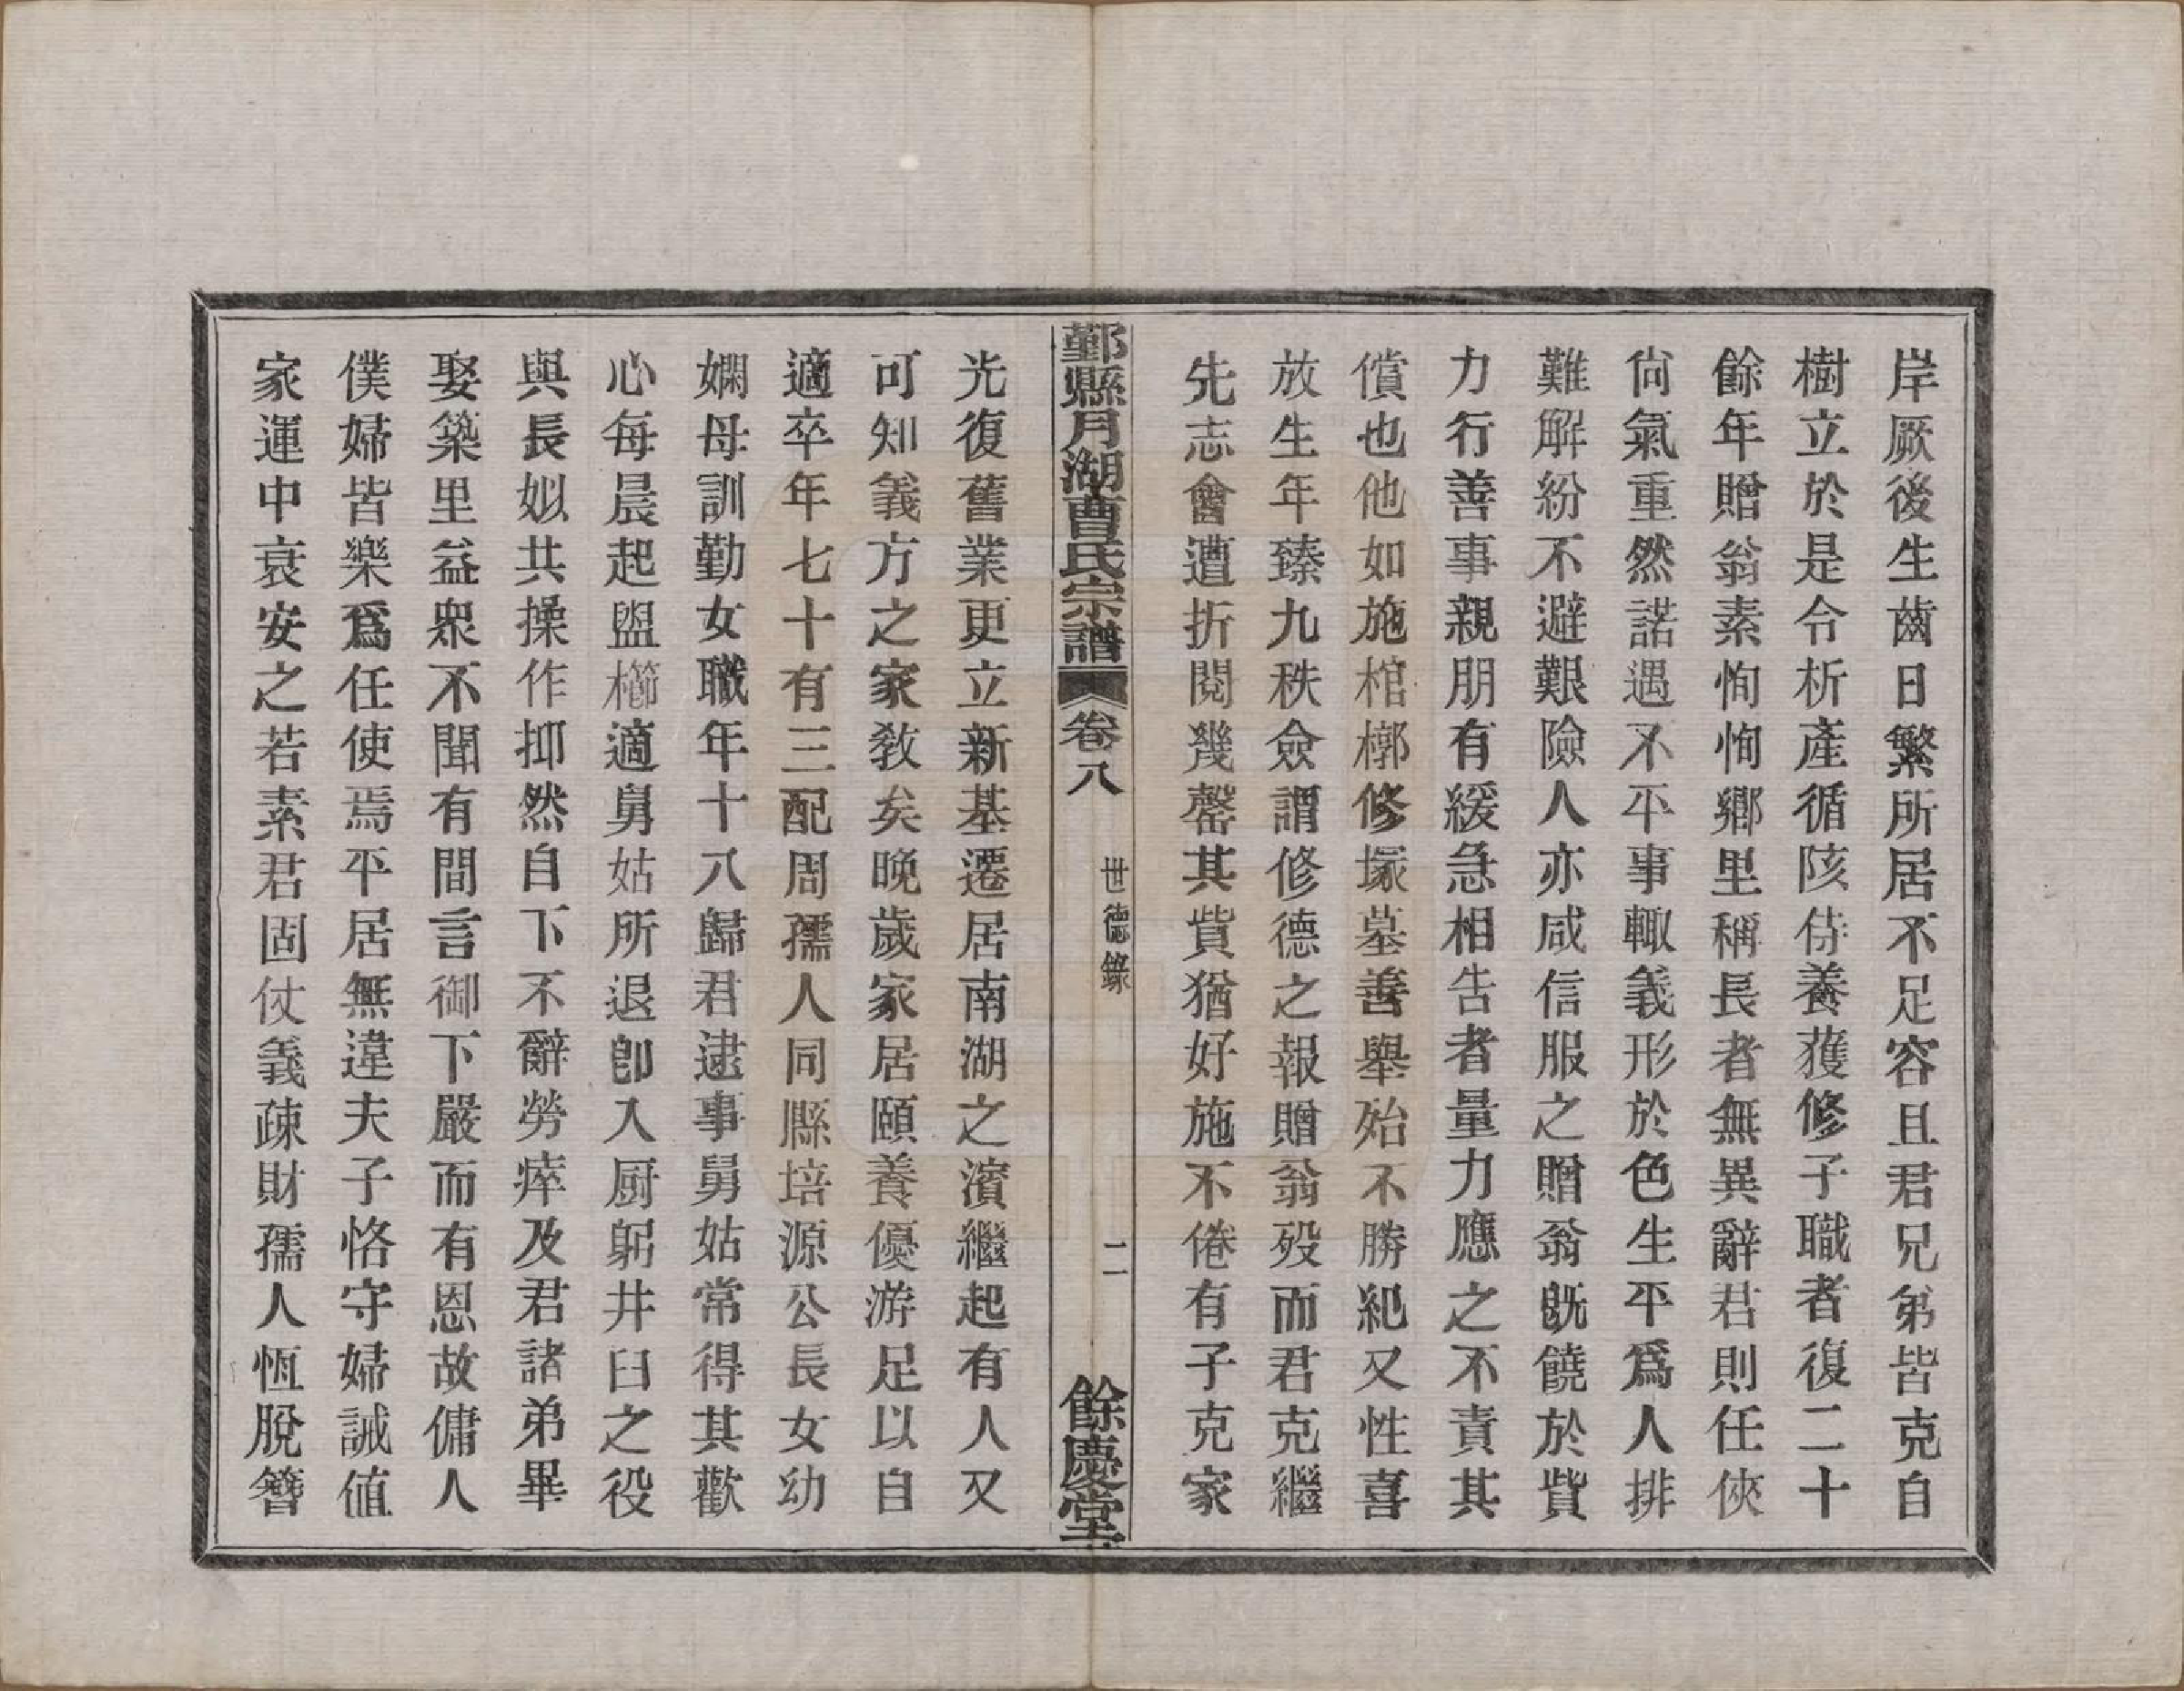 岸厥後生齒日繁所居不足容且君兄弟皆克自
樹立於是令析產循陔侍養獲修子職者復二十
餘年贈翁素恂恂鄉里稱長者無異辭君則任俠
尙氣重然諾遇不平事輙義形於色生平爲人排
難解紛不避艱險人亦咸信服之贈翁旣饒於貲
力行善事親朋有緩急相吿者量力應之不責其
償也他如施棺槨修塚墓善舉殆不勝紀又性喜
放生年臻九秩僉謂修德之報贈翁歿而君克繼
先志會遭折閱幾罄其貲猶好施不倦有子克家
鄞縣月湖曹氏宗譜 卷八 世德錄 二 餘慶堂
光復舊業更立新基遷居南湖之濱繼起有人又
可知義方之家敎矣晚歲家居頤養優游足以自
適卒年七十有三配周孺人同縣培源公長女幼
嫻母訓勤女職年十八歸君逮事舅姑常得其歡
心每晨起盥櫛適舅姑所退卽入厨躬井臼之役
與長姒共操作抑然自下不辭勞瘁及君諸弟畢
娶築里益衆不聞有間言御下嚴而有恩故傭人
僕婦皆樂爲任使焉平居無違夫子恪守婦誡値
家運中衰安之若素君固仗義疎財孺人恆脫簪